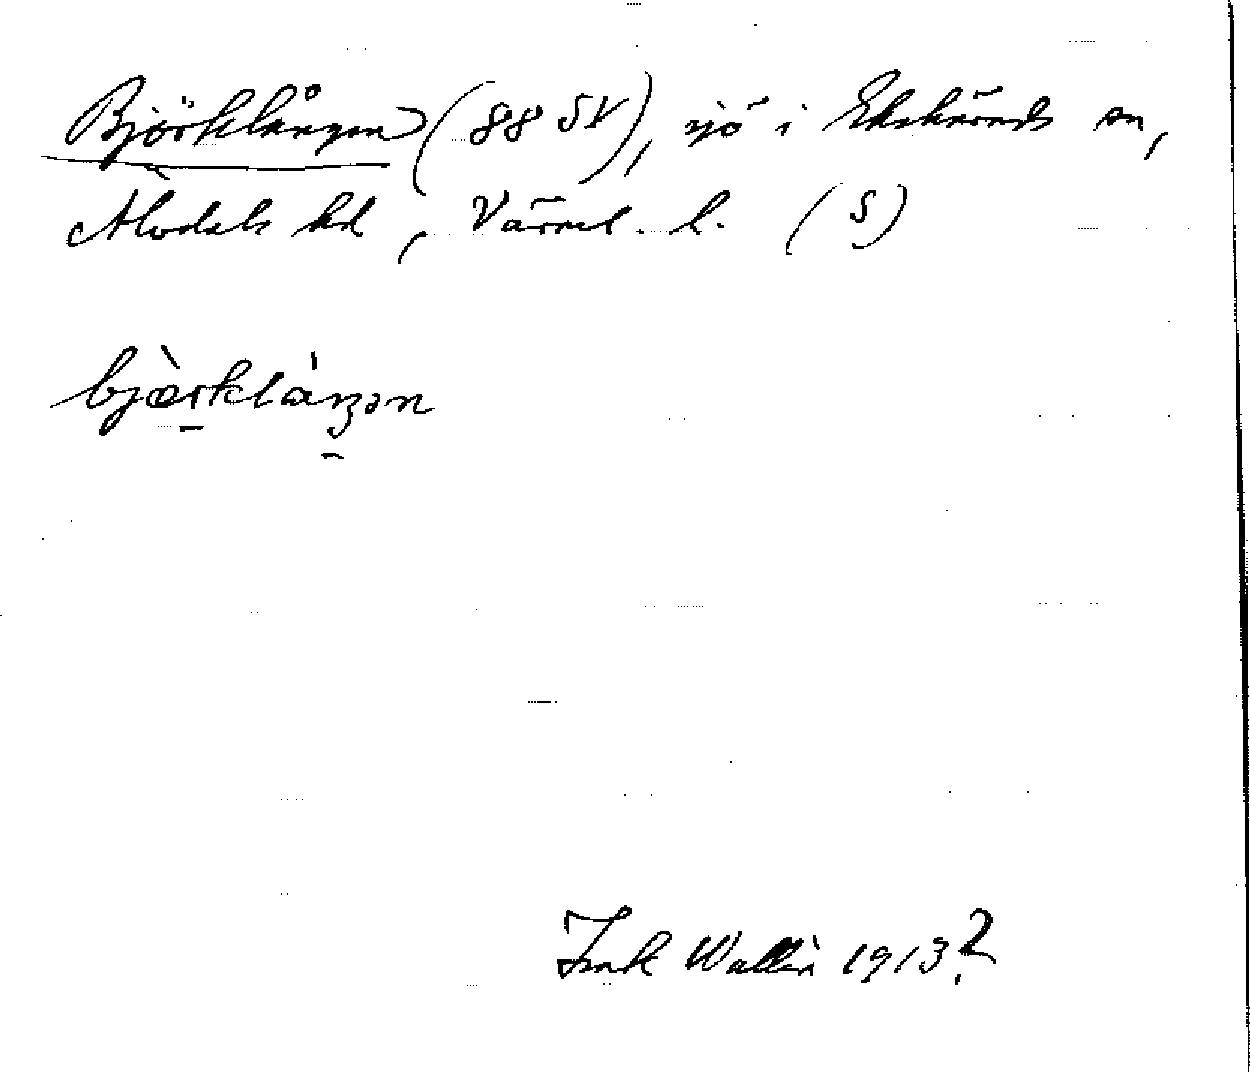 Björklången (88 SV), sjö i Ekshärads sn,
Älvdals hd, Värml. l. (S)
bjæ̀rklàŋən
Wallin 1913?